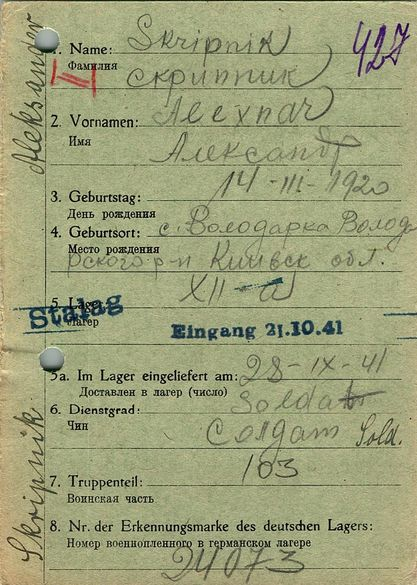 Aleksander
Skripnik
427
1. Name: Skripnik
Фамилия скрипник
2. Vornamen: Alexnar
Имя Александр
3. Geburtstag: 14-III-1920
День рождения
4. Geburtsort: с. Володарка Волода
Место рождения
рского р-н Киивск обл.
5. Lager: XII-a
Лагер
Stalag
Eingang 21.10.41
5a. Im Lager eingeliefert am: 28-IX-41
Доставлен в лагер (число)
6. Dienstgrad: Soldat
Чин Солдат Sold.
7. Truppenteil: 103
Воинская часть
8. Nr. der Erkennungsmarke des deutschen Lagers:
Номер военнопленного в германском лагере
24073